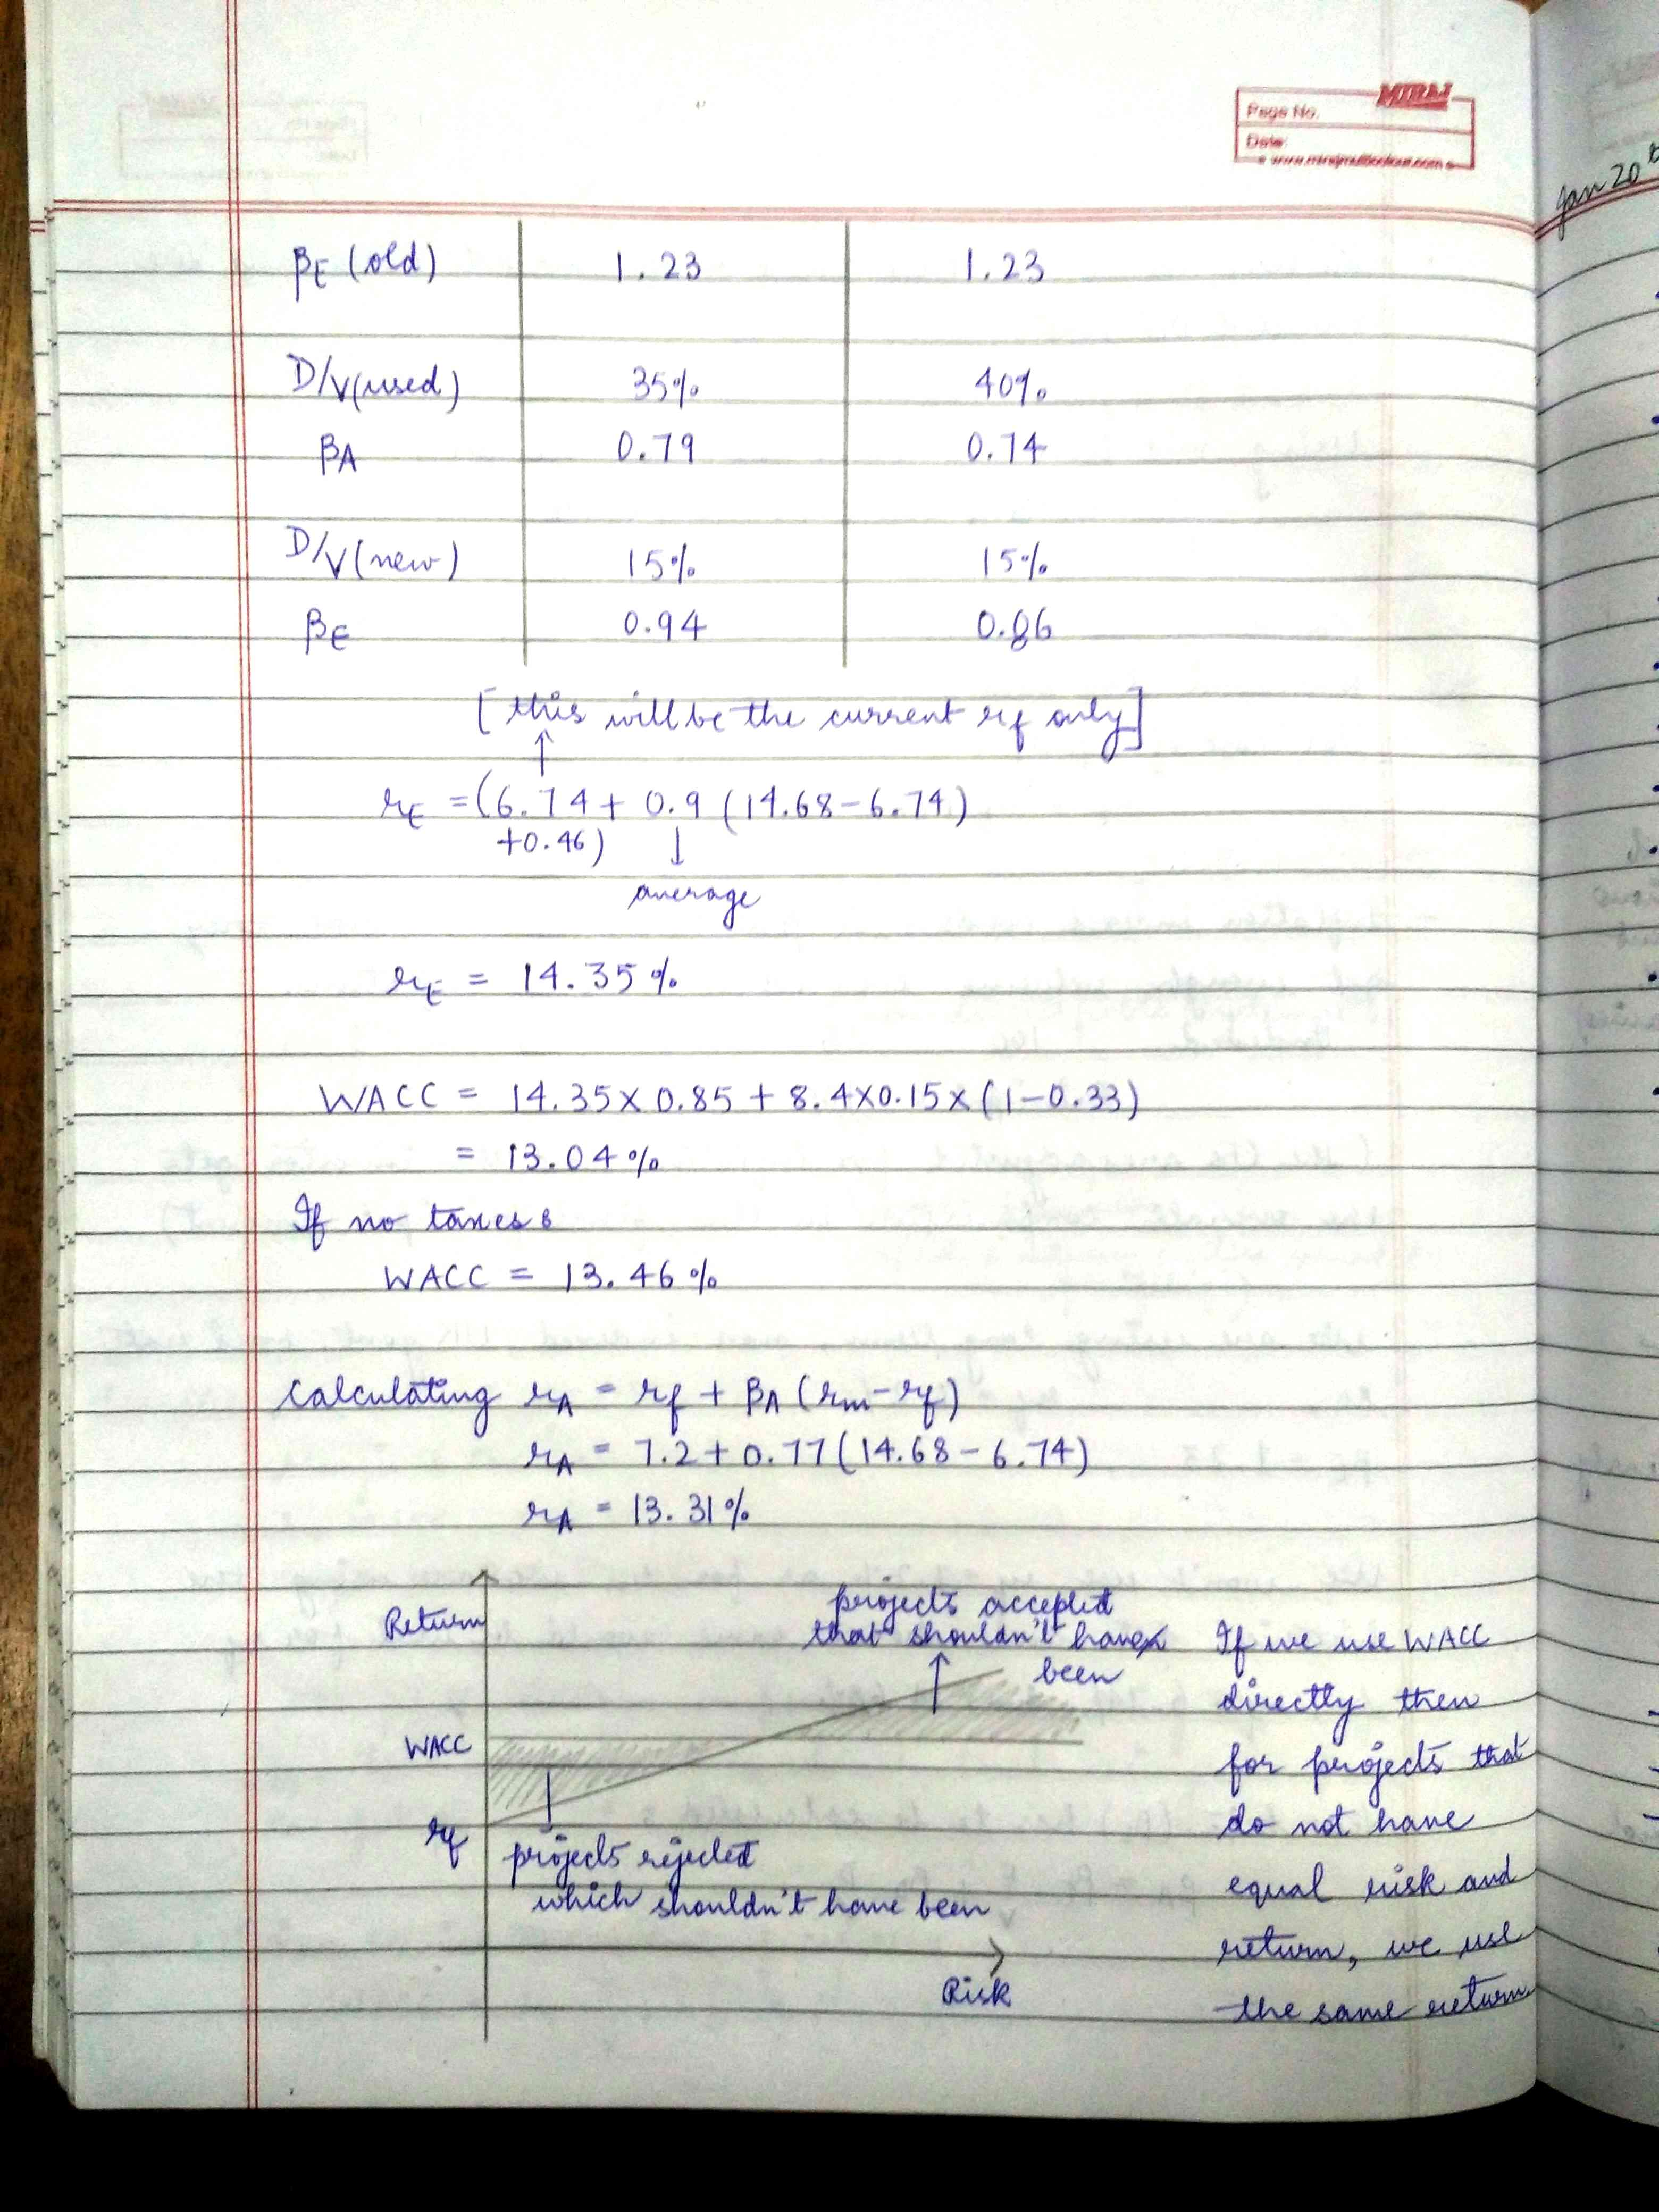 MIRAJ
Page No.
Date:
Jan 20
βE (old) 1.23 1.23
D/V(used) 35% 40%
βA 0.79 0.74
D/V(new) 15% 15%
βE 0.94 0.86
[this will be the current rf only]
↑
rE = (6.74 + 0.9 (14.68 - 6.74)
+0.46) ↓
average
rE = 14.35%
WACC = 14.35 × 0.85 + 8.4 × 0.15 × (1 - 0.33)
= 13.04%
If no taxes:
WACC = 13.46%
Calculating rA = rf + βA (rm - rf)
rA = 7.2 + 0.77 (14.68 - 6.74)
rA = 13.31%
Return
projects accepted
that shouldn't have
been
WACC
rf
projects rejected
which shouldn't have been
Risk
If we use WACC
directly then
for projects that
do not have
equal risk and
return, we use
the same return